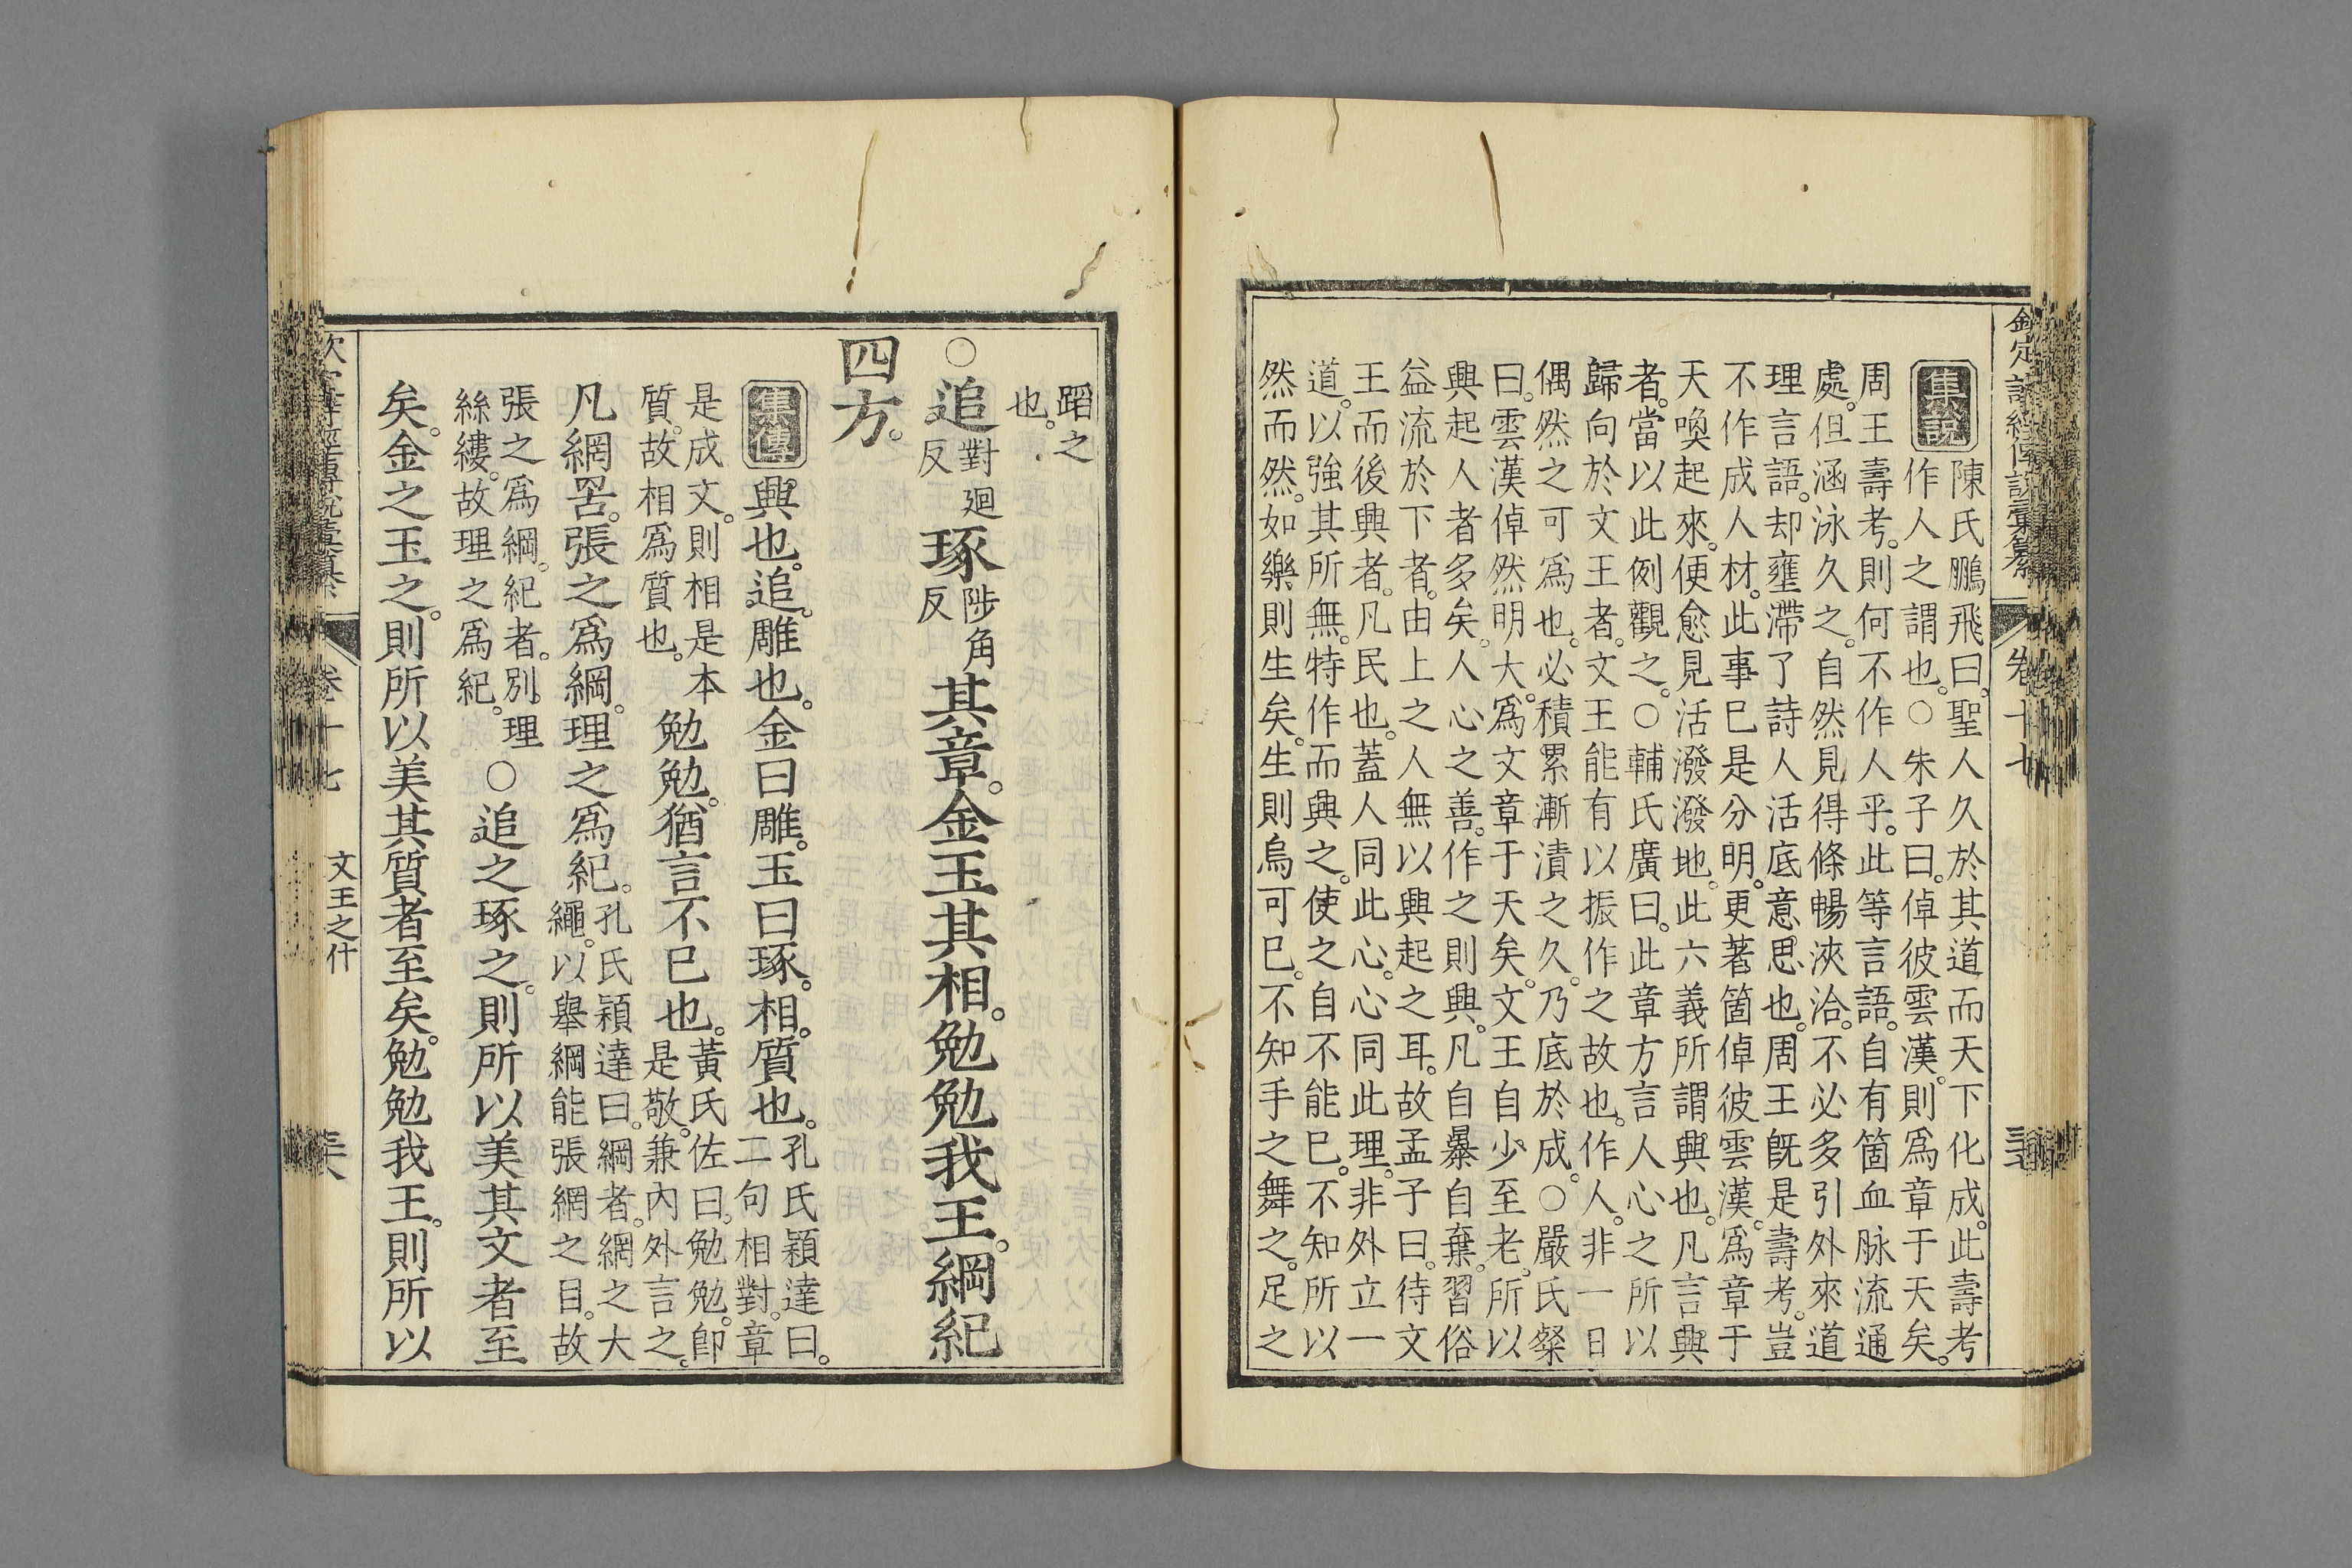 集說
陳氏鵬飛曰。聖人久於其道而天下化成。此壽考
作人之謂也。○朱子曰。倬彼雲漢。則爲章于天矣。
周王壽考。則何不作人乎。此等言語。自有箇血脉流通
處。但涵泳久之。自然見得條暢浹洽。不必多引外來道
理言語。却壅滯了詩人活底意思也。周王旣是壽考。豈
不作成人材。此事已是分明。更著箇倬彼雲漢。爲章于
天喚起來。便愈見活潑潑地。此六義所謂興也。凡言興
者。當以此例觀之。○輔氏廣曰。此章方言人心之所以
歸向於文王者。文王能有以振作之故也。作人。非一日
偶然之可爲也。必積累漸漬之久。乃底於成。○嚴氏粲
曰。雲漢倬然明大。爲文章于天矣。文王自少至老。所以
興起人者多矣。人心之善。作之則興。凡自暴自棄。習俗
益流於下者。由上之人無以興起之耳。故孟子曰。待文
王而後興者。凡民也。蓋人同此心。心同此理。非外立一
道。以強其所無。特作而興之。使之自不能已。不知所以
然而然。如樂則生矣。生則烏可已。不知手之舞之。足之
蹈之
也。
○追對廻反琢陟角反其章。金玉其相。勉勉我王。綱紀
四方。
集傳
興也。追。雕也。金曰雕。玉曰琢。相。質也。孔氏穎達曰。二句相對。章
是成文。則相是本質。故相爲質也。勉勉。猶言不已也。黃氏佐曰。勉勉。卽是敬。兼內外言之。
凡網罟。張之爲綱。理之爲紀。孔氏穎達曰。綱者。網之大繩。以舉綱能張網之目。故
張之爲綱。紀者。別理絲縷。故理之爲紀。○追之琢之。則所以美其文者至
矣。金之玉之。則所以美其質者至矣。勉勉我王。則所以
卷十七
文王之什